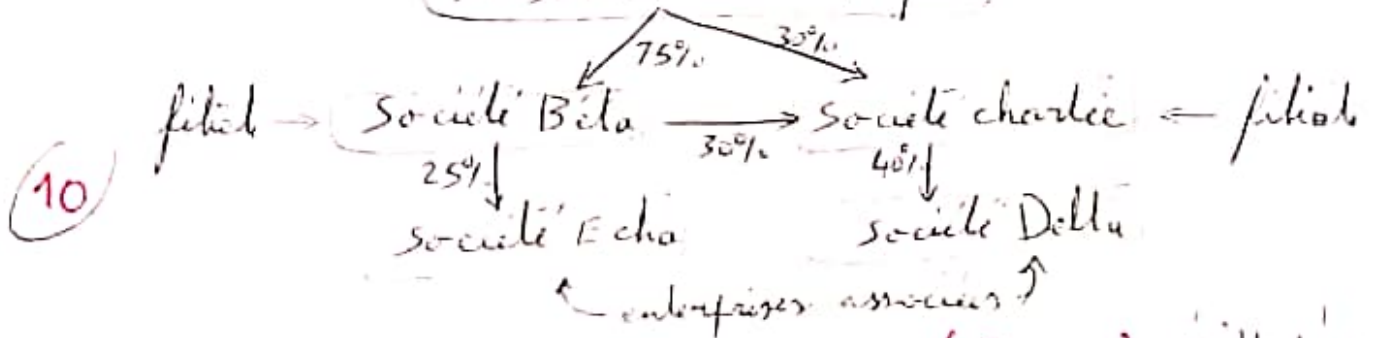 75% 30%
filial → société Béta → société charlie ← filial
30%
25% 40%
10
société Echo société Delta
entreprises associés